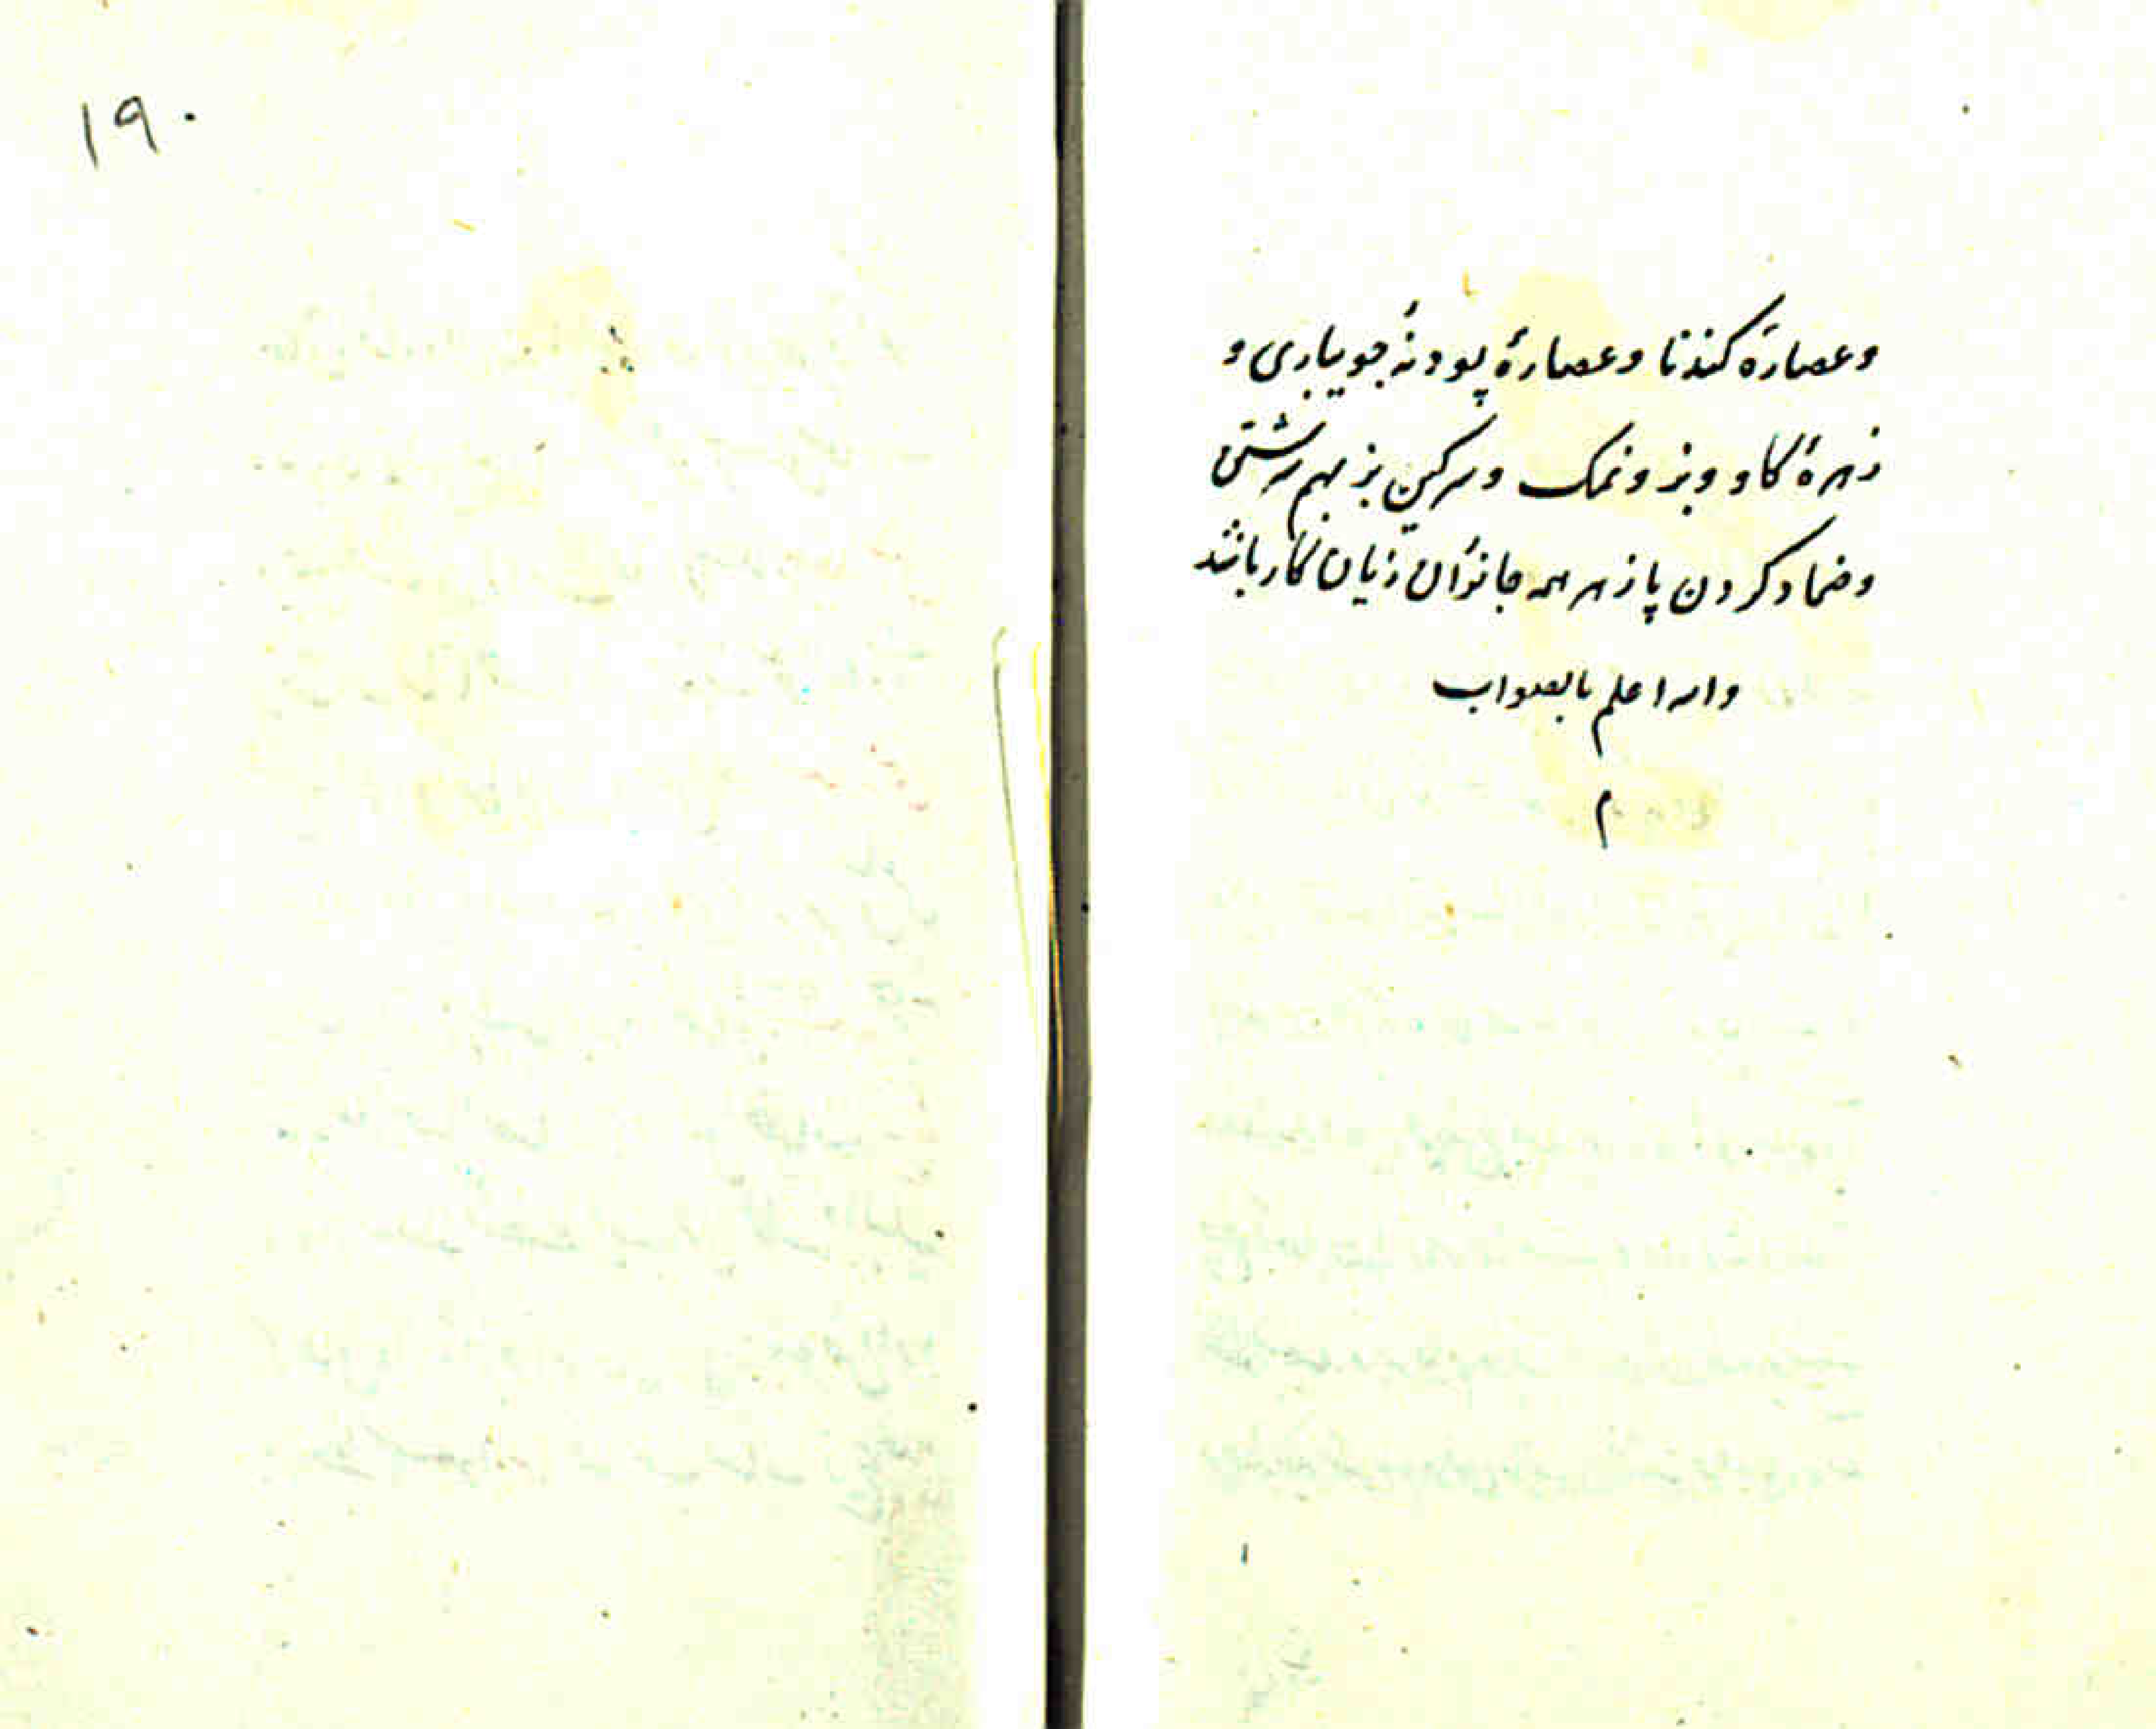 وعصارهٔ کندنا وعصارهٔ پودنهٔ جویباری و
زهرهٔ کاو وبز ونمک وسرکین بز بهم سرشتن
وضماد کردن پازهر همه جانوران زیان کار باشد
والله اعلم بالصواب
م
۱۹۰